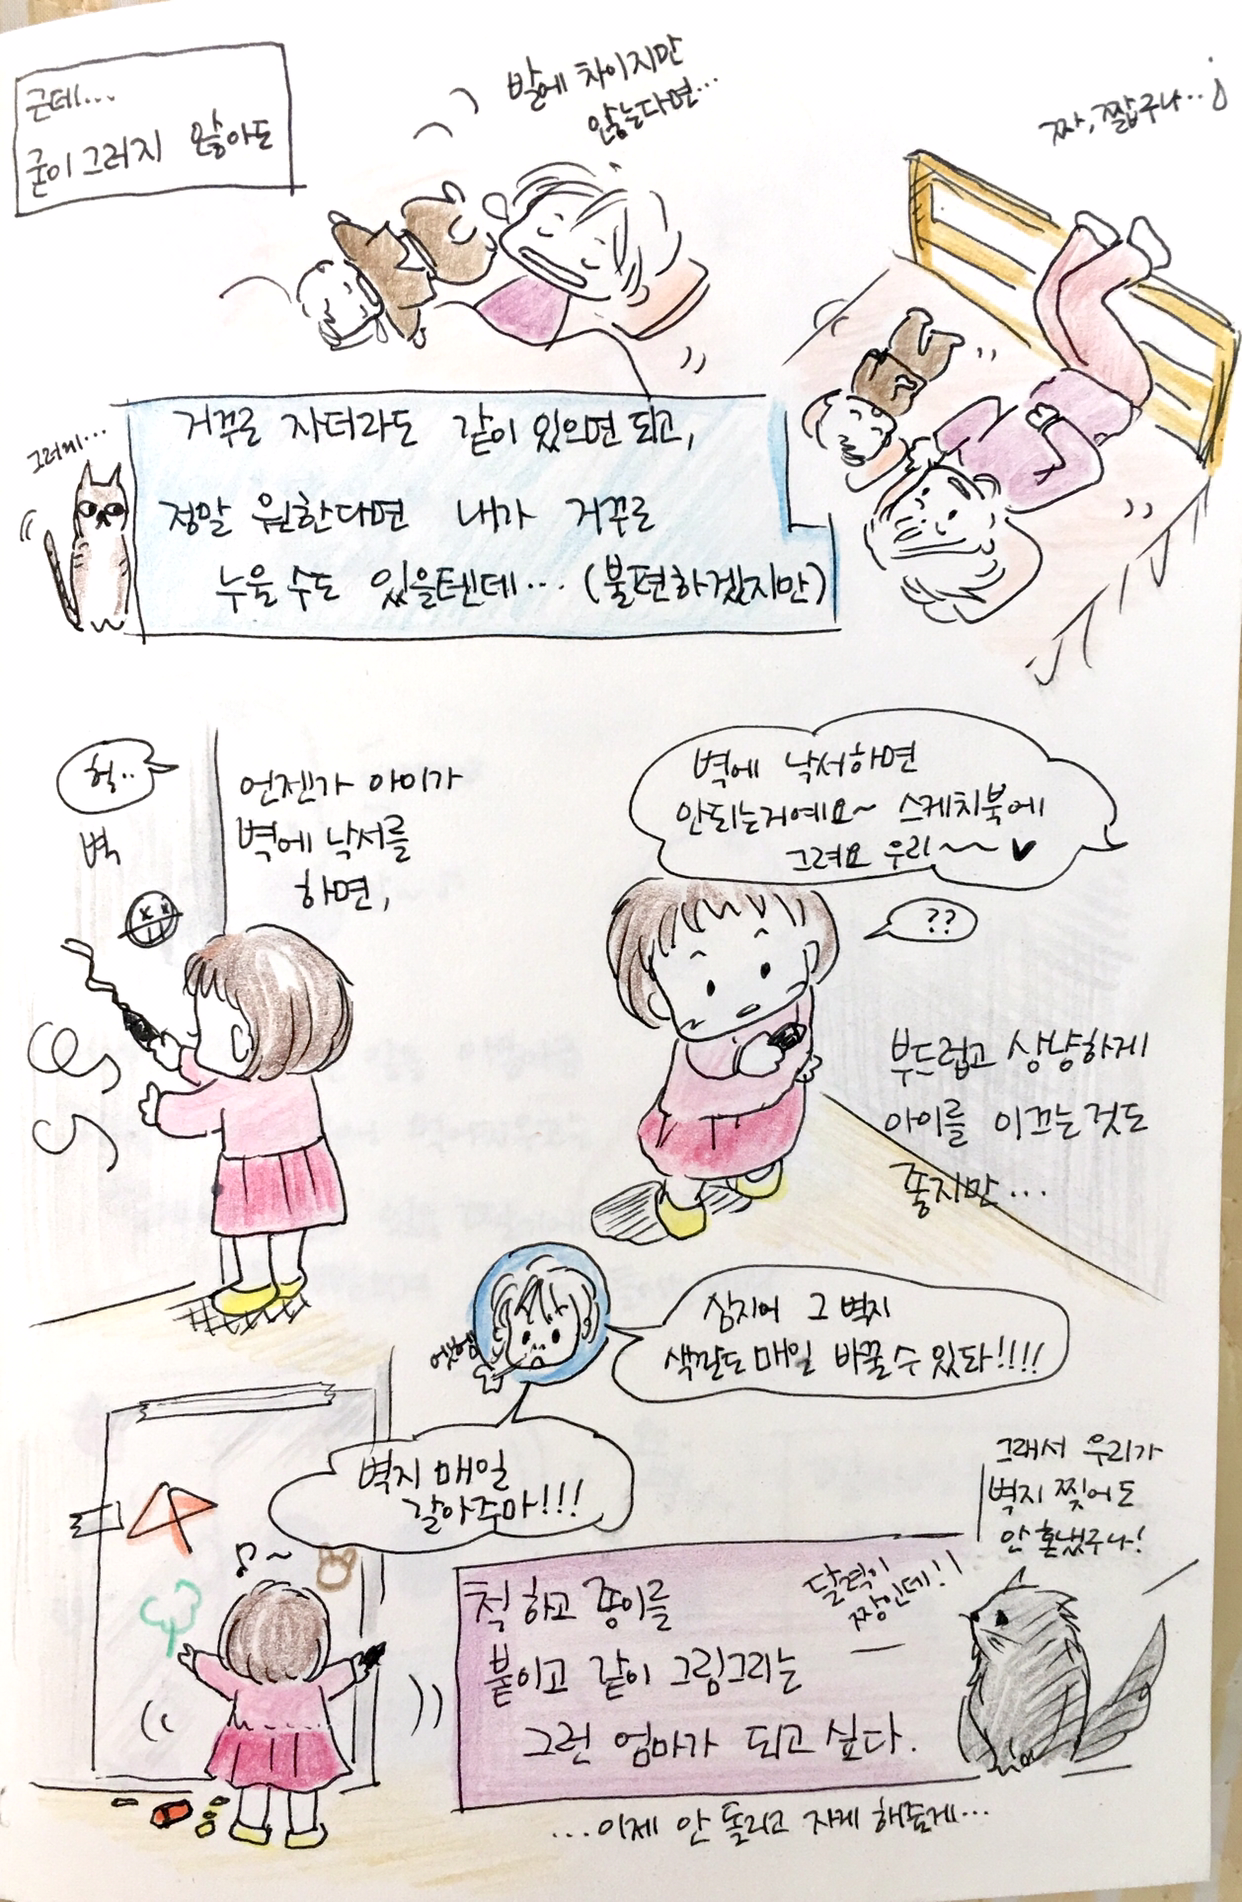 근데...
굳이 그러지 않아도
발에 차이지만
않는다면...
짜, 짧구나...
그러게...
거꾸로 자더라도 같이 있으면 되고,
정말 원한다면 내가 거꾸로
누울 수도 있을텐데... (불편하겠지만)
헉..
벽
언젠가 아이가
벽에 낙서를
하면,
벽에 낙서하면
안되는거예요~ 스케치북에
그려요 우리~~ ♥
??
부드럽고 상냥하게
아이를 이끄는것도
좋지만...
에헴
심지어 그 벽지
색깔도 매일 바꿀 수 있다!!!!
벽지 매일
갈아주마!!!
♪~
척 하고 종이를
붙이고 같이 그림그리는
그런 엄마가 되고 싶다.
달력이
짱인데!!
그래서 우리가
벽지 찢어도
안 혼냈구나!
...이제 안 돌리고 자게 해줄게...